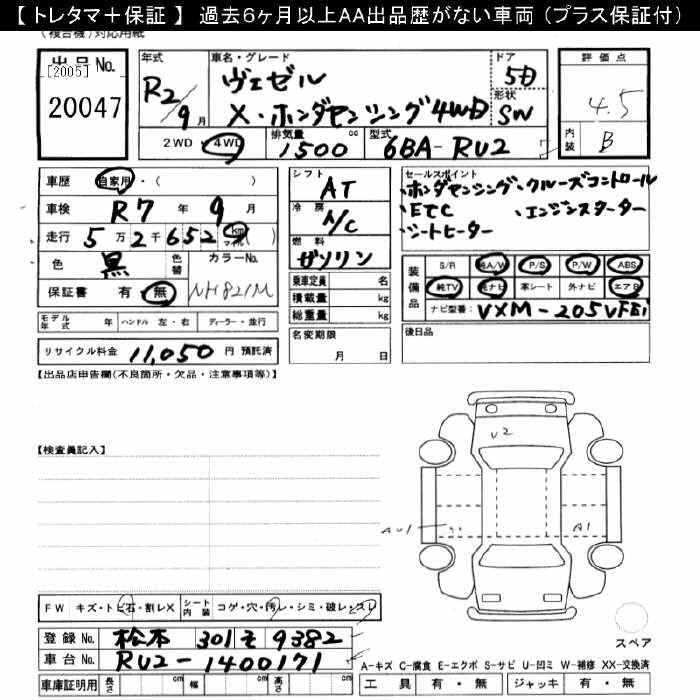 【 トレタマ＋保証 】 過去６ヶ月以上ＡＡ出品歴がない車両 (プラス保証付)
(複合機)対応用紙
出品No.
[2005]
20047
年式
R2/9月
車名・グレード
ヴェゼル
X・ホンダセンシング4WD
ドア
5D
形状
SW
評価点
4.5
内装
B
2WD ・ 4WD
排気量
1500 cc
型式
6BA-RU2
車歴 自家用・( )
車検 R7 年 9 月
走行 5万2千652 km マイル( )
色 黒 色替 カラーNo.
保証書 有・無 NH821M
シフト
AT
冷房
A/C
燃料
ガソリン
乗車定員 名
積載量 kg
総重量 kg
セールスポイント
・ホンダセンシング・クルーズコントロール
・ETC ・エンジンスターター
・シートヒーター
装備品
S/R 純A/W P/S P/W ABS
純TV 純ナビ 革シート 外ナビ エアB
ナビ型番: VXM-205VFEi
モデル年式 年 ハンドル 左・右 ディーラー・並行
名変期限
月 日
後日品
リサイクル料金 11,050 円 預託済
【出品店申告欄(不良箇所・欠品・注意事項等)】
【検査員記入】
U2
A1
FW キズ・トビ石・割レX シート内装 コゲ・穴・汚レ・シミ・破レ・スレ
登録No. 松本 301 そ 9382
車台No. RU2-1400171
車庫証明用 長さ cm 幅 cm 高さ cm
スペア
A-キズ C-腐食 E-エクボ S-サビ U-凹ミ W-補修 XX-交換済
工具 有・無 ジャッキ 有・無